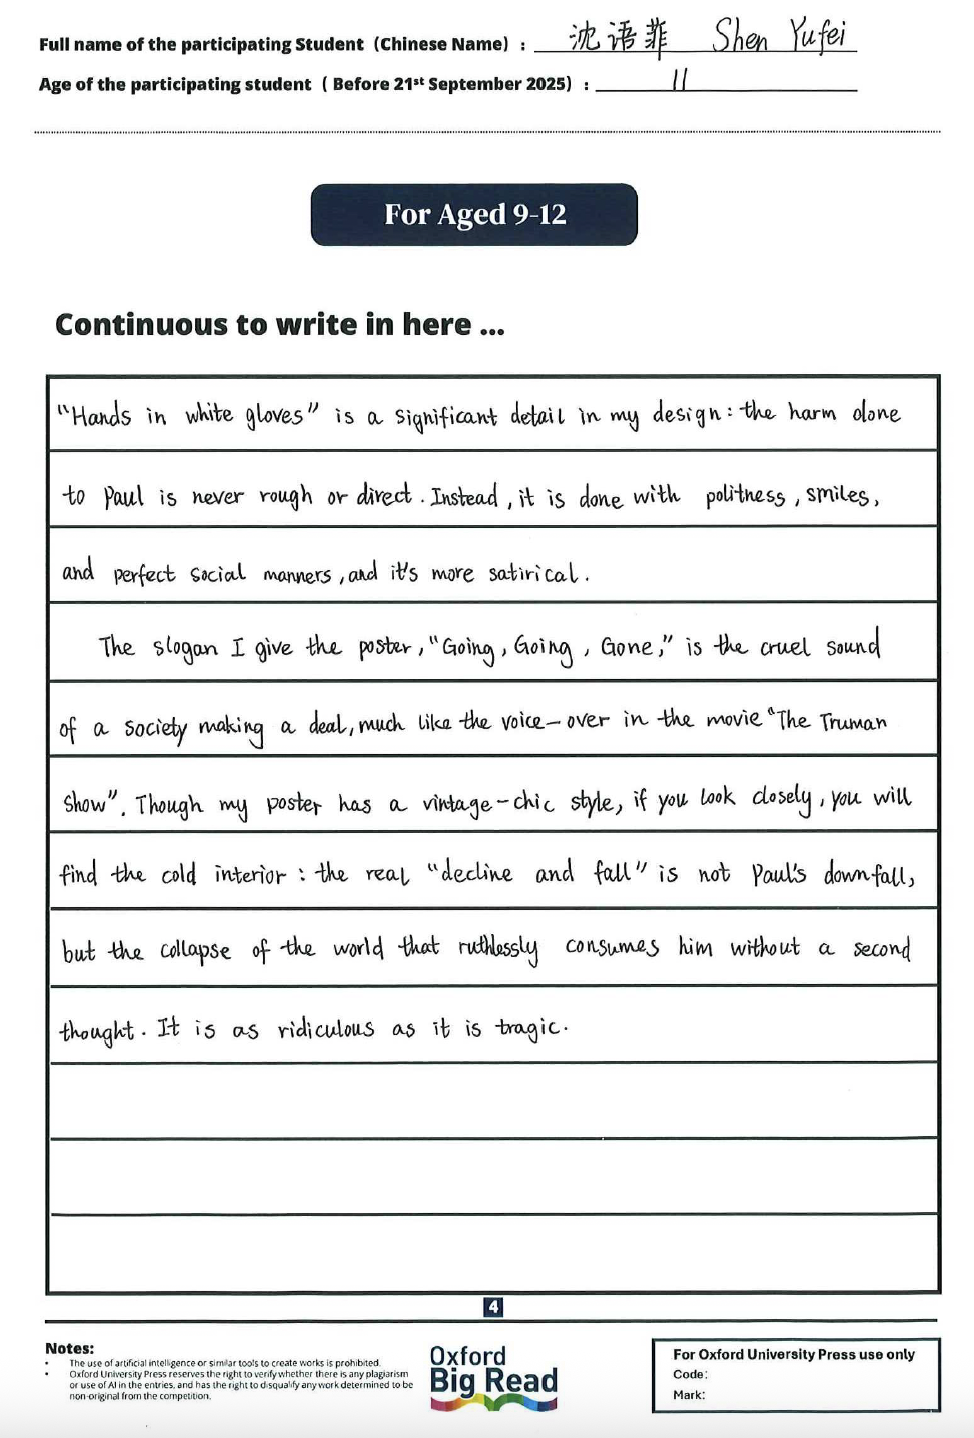 Full name of the participating Student (Chinese Name) : 沈语菲 Shen Yufei
Age of the participating student ( Before 21st September 2025) : 11
For Aged 9-12
Continuous to write in here ...
"Hands in white gloves" is a significant detail in my design: the harm done
to Paul is never rough or direct. Instead, it is done with politness, smiles,
and perfect social manners, and it's more satirical.
The slogan I give the poster, "Going, Going, Gone," is the cruel sound
of a society making a deal, much like the voice-over in the movie "The Truman
Show". Though my poster has a vintage-chic style, if you look closely, you will
find the cold interior: the real "decline and fall" is not Paul's downfall,
but the collapse of the world that ruthlessly consumes him without a second
thought. It is as ridiculous as it is tragic.
4
Notes:
• The use of artificial intelligence or similar tools to create works is prohibited.
• Oxford University Press reserves the right to verify whether there is any plagiarism
or use of AI in the entries, and has the right to disqualify any work determined to be
non-original from the competition.
Oxford
Big Read
For Oxford University Press use only
Code:
Mark: